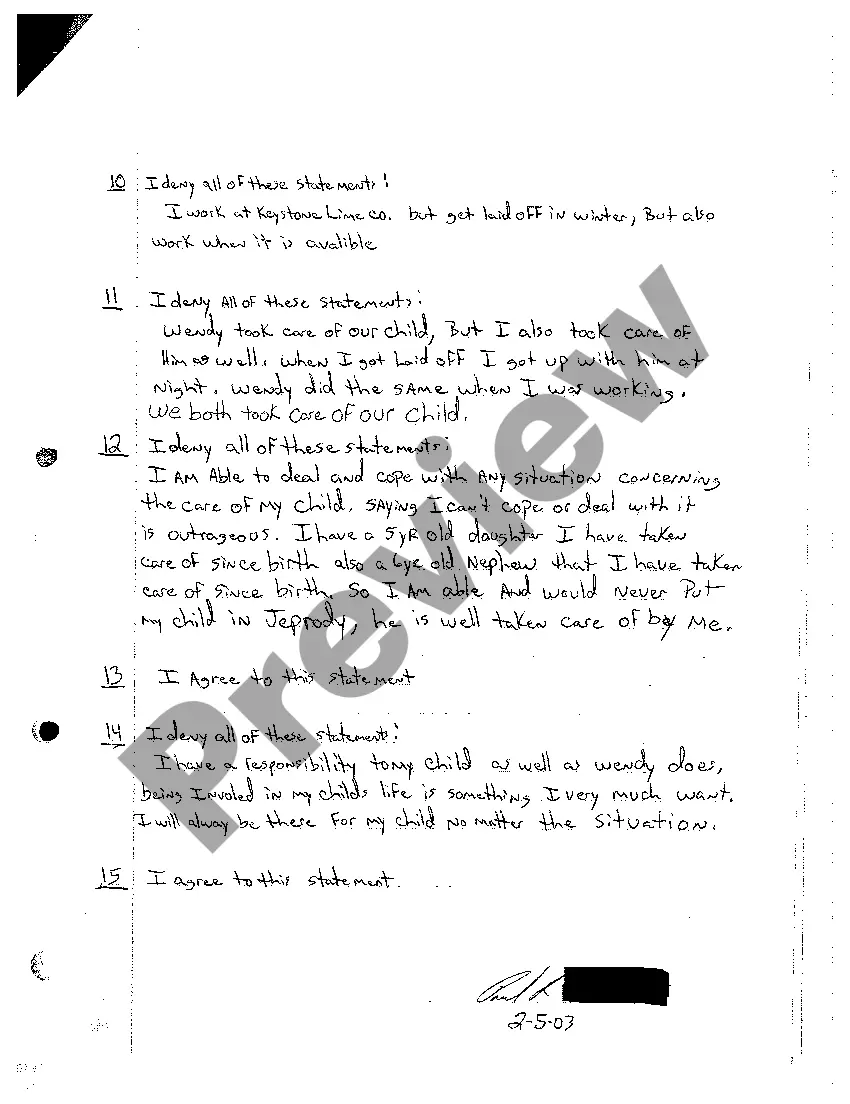 10 I deny all of these statements!
I work at Keystone Lime Co. but get laid off in winter, But also
work when it is avalible
11 I deny All of these statements:
Wendy took care of our child, But I also took care of
Him as well. when I got laid off I got up with him at
Night. Wendy did the same when I was working.
We both took care of our child.
12 I deny all of these statements:
I AM Able to deal and cope with Any situation concerning
the care of my child. Saying I can't cope or deal with it
is outrageous. I have a 5yr old daughter I have taken
care of since birth also a 6yr old Nephew that I have taken
care of since birth. So I Am able And would Never Put
my child in Jeprody, he is well taken care of by Me.
13 I Agree to this statement
14 I deny all of these statements!
I have a responsibility to my child as well as wendy does,
being Involed in my childs life is something I very much want.
I will alway be there for my child no matter the situation.
15 I agree to this statement.
2-5-03
Preview